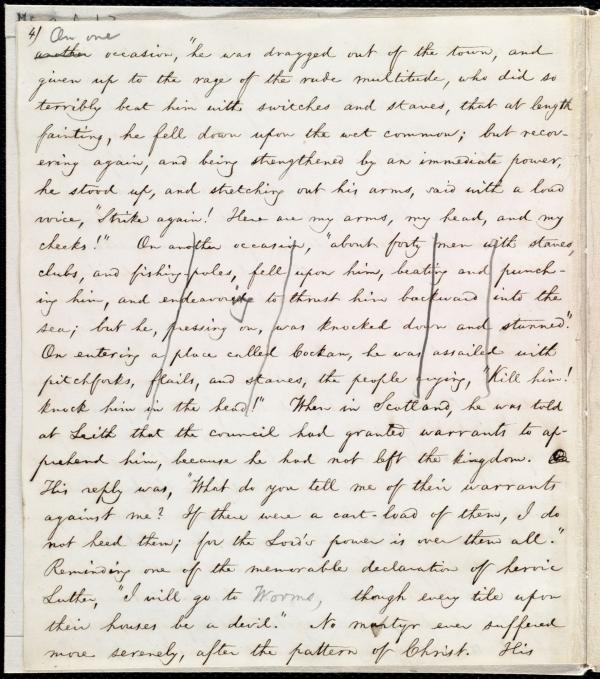 4) On one
another occasion, "he was dragged out of the town, and
given up to the rage of the rude multitude, who did so
terribly beat him with switches and staves, that at length
fainting, he fell down upon the wet common; but recov-
ering again, and being strengthened by an immediate power,
he stood up, and stretching out his arms, said with a loud
voice, "Strike again! Here are my arms, my head, and my
cheeks!" On another occasion, "about forty men with staves,
clubs, and fishing-poles, fell upon him, beating and punch-
ing him, and endeavoring to thrust him backward into the
sea; but he, pressing on, was knocked down and stunned."
On entering a place called Cockan, he was assailed with
pitchforks, flails, and staves, the people crying, "Kill him!
knock him in the head!" When in Scotland, he was told
at Leith that the council had granted warrants to ap-
prehend him, because he had not left the kingdom.
His reply was, "What do you tell me of their warrants
against me? If there were a cart-load of them, I do
not heed them; for the Lord's power is over them all."
Reminding one of the memorable declaration of heroic
Luther, "I will go to Worms, though every tile upon
their houses be a devil." No martyr ever suffered
more serenely, after the pattern of Christ. His